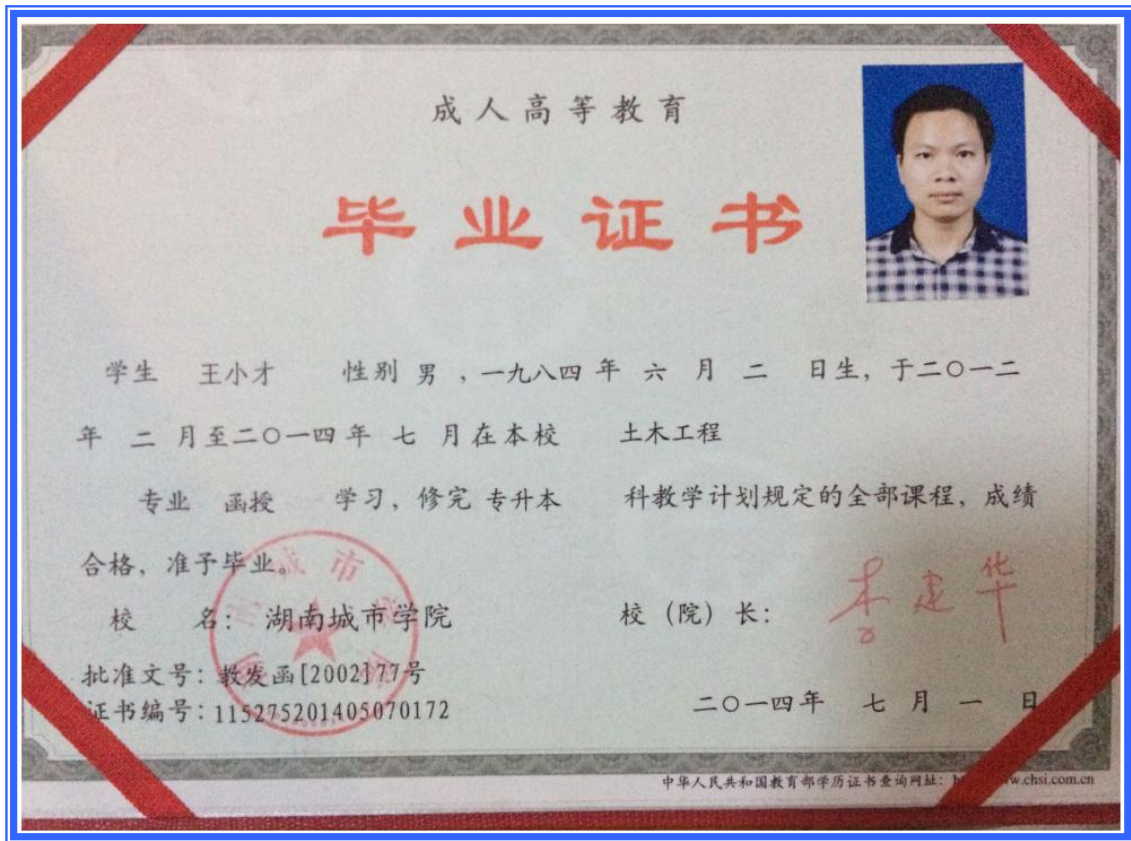 成人高等教育
毕业证书
学生 王小才 性别 男 ，一九八四 年 六 月 二 日生，于二〇一二
年 二 月至二〇一四 年 七 月在本校 土木工程
专业 函授 学习，修完 专升本 科教学计划规定的全部课程，成绩
合格，准予毕业。
校 名：湖南城市学院 校（院）长：李建华
批准文号：教发函[2002]77号
证书编号：115275201405070172 二〇一四年 七 月 一 日
中华人民共和国教育部学历证书查询网址： w.chsi.com.cn